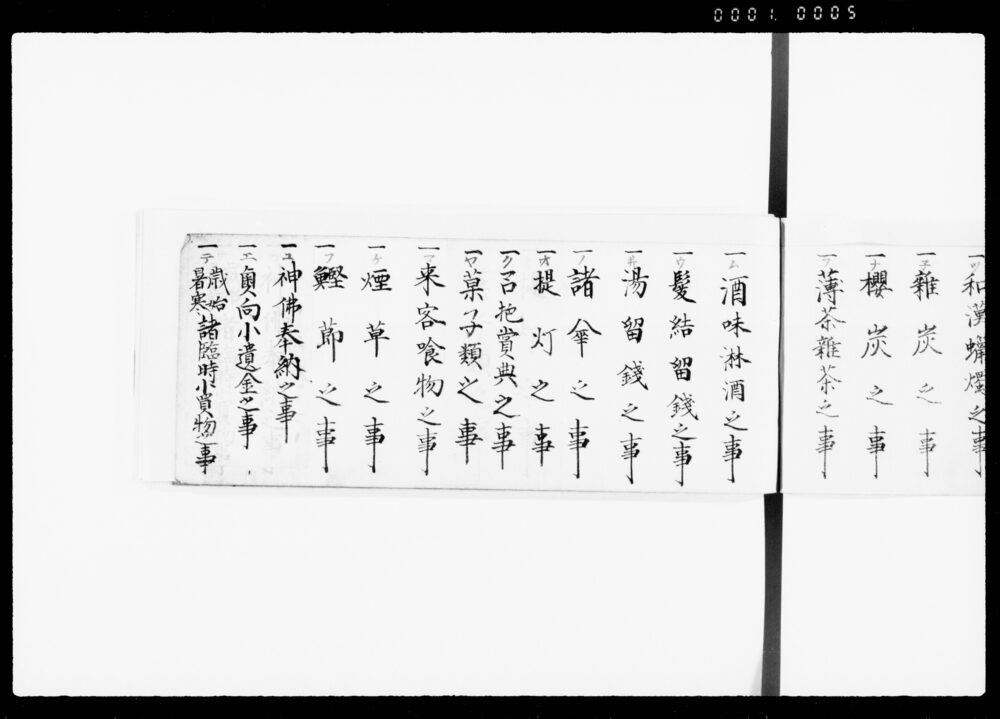 0001. 0005
一ツ和漢蠟燭之事
一子雜炭之事
一ナ櫻炭之事
一ラ薄茶雜茶之事
一ム酒味淋酒之事
一ウ髪結留錢之事
一井湯留錢之事
一ノ諸傘之事
一オ提灯之事
一ク召抱賞典之事
一ヤ菓子類之事
一マ来客喰物之事
一ケ煙草之事
一フ鰹節之事
一ユ神佛奉納之事
一エ向小遣金之事
一テ歳始暑寒諸臨時小買物之事